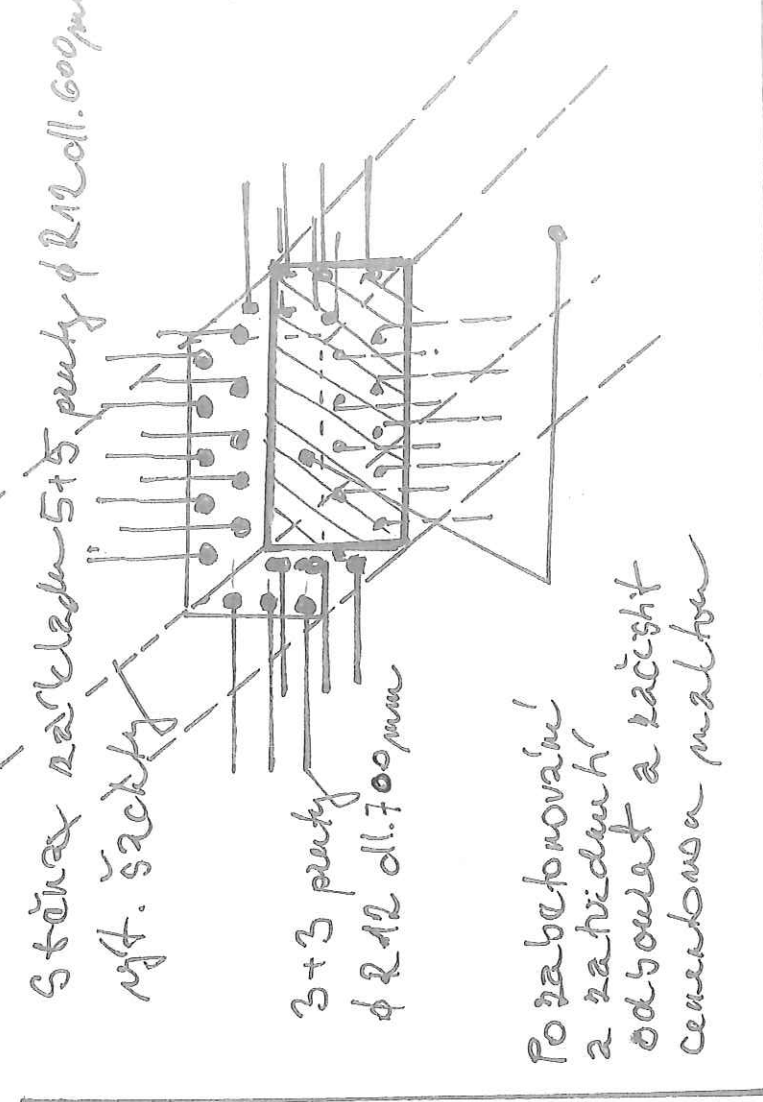 Stěna základu 5+5 pruty ϕ R12 dl. 600m
výt. šachty
3+3 pruty
ϕ R12 dl. 700 mm
Po zabetonování
a zatvrdnutí
odbourat a začistit
cementovou maltou